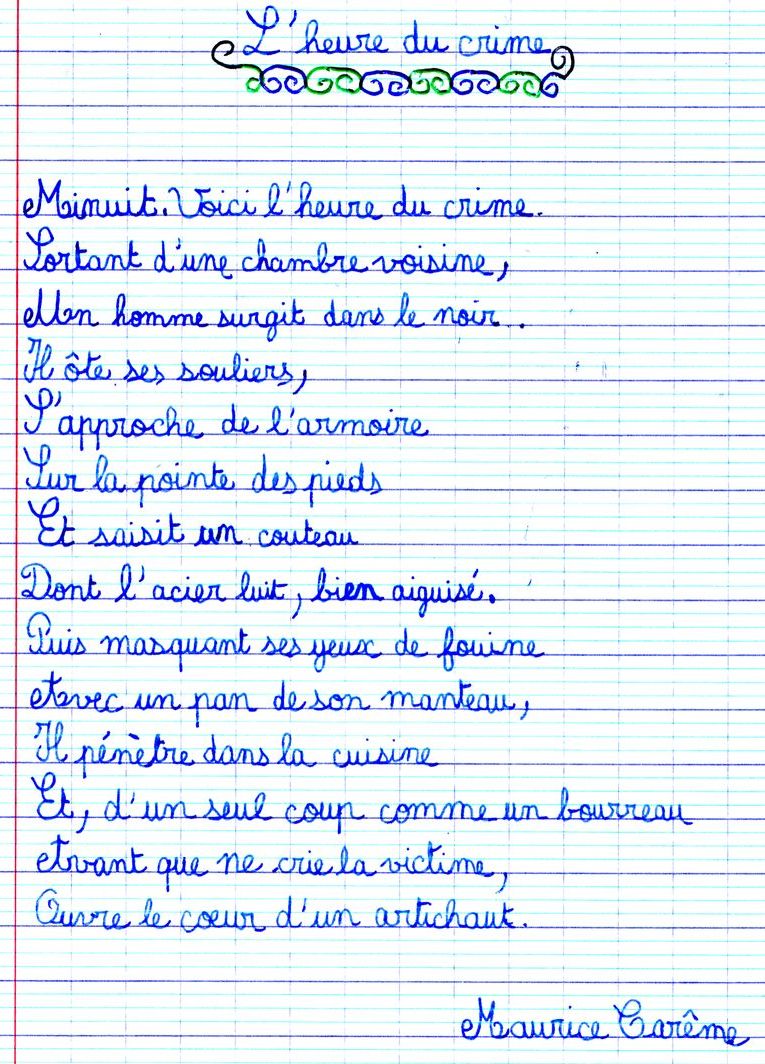 L'heure du crime
Minuit. Voici l'heure du crime.
Sortant d'une chambre voisine,
Un homme surgit dans le noir.
Il ôte ses souliers,
S'approche de l'armoire
Sur la pointe des pieds
Et saisit un couteau
Dont l'acier luit, bien aiguisé.
Puis masquant ses yeux de fouine
Avec un pan de son manteau,
Il pénètre dans la cuisine
Et, d'un seul coup comme un bourreau
Avant que ne crie la victime,
Ouvre le coeur d'un artichaut.
Maurice Carême